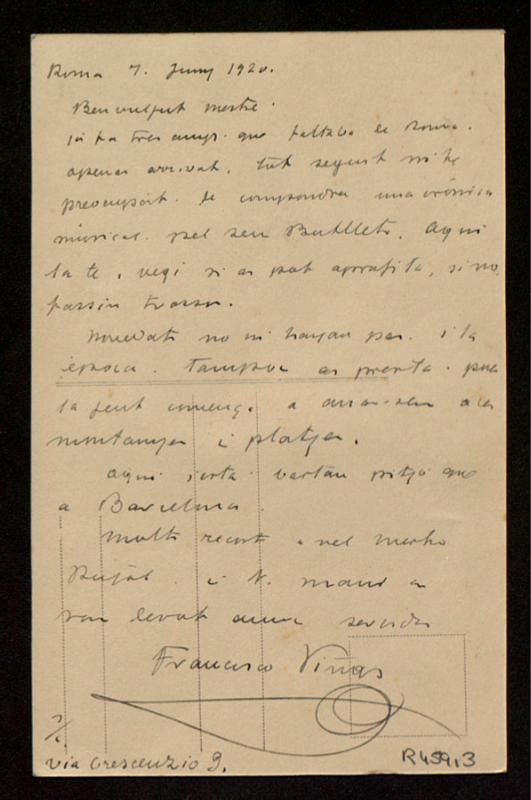 Roma 7. Juny 1920.
Benvolgut mestre.
Ja fa tres anys que faltava de Roma.
apenas arrivat, tot seguit m'he
preocupat de compondra una crónica
músical pel seu Butlletí. Aqui
la te, vegi si es pot aprofitá, si no
fassin trossos.
Novedats no ni hayan pas i la
época tampoc es presta pues
la gent comença a anar-sen a les
montanyes i platjes.
aqui s'está bastan pitjó que
a Barcelona.
Molts recorts a nel mestre
Pujol i V. mani a
son devot amic servidor
Francisco Viñas
via Crescenzio 9.
R459,3